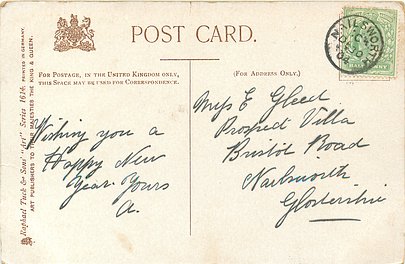 POST CARD.
FOR POSTAGE, IN THE UNITED KINGDOM ONLY,
THIS SPACE MAY BE USED FOR CORRESPONDENCE.
(FOR ADDRESS ONLY.)
Raphael Tuck & Sons' "Art" Series 1616. PRINTED IN GERMANY.
ART PUBLISHERS TO THEIR MAJESTIES THE KING & QUEEN.
Wishing you a
Happy New
Year. Yours
A.
Miss E Gleed
Prospect Villa
Bristol Road
Nailsworth
Glostershire
NAILSWORTH
HALFPENNY